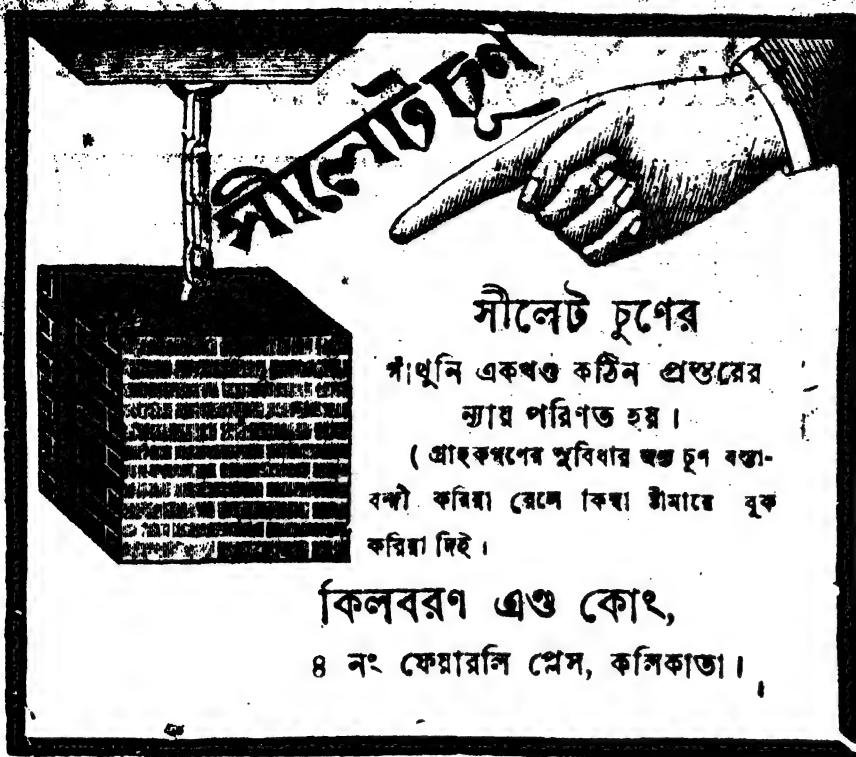 সীলেট চুণ
সীলেট চুণের
গাঁথুনি একখণ্ড কঠিন প্রস্তরের
ন্যায় পরিণত হয়।
( গ্রাহকগণের সুবিধার জন্য চুণ বস্তা-
বন্দী করিয়া রেলে কিম্বা ষ্টীমারে বুক
করিয়া দিই।
কিলবরণ এণ্ড কোং,
৪ নং ফেয়ারলি প্লেস, কলিকাতা।